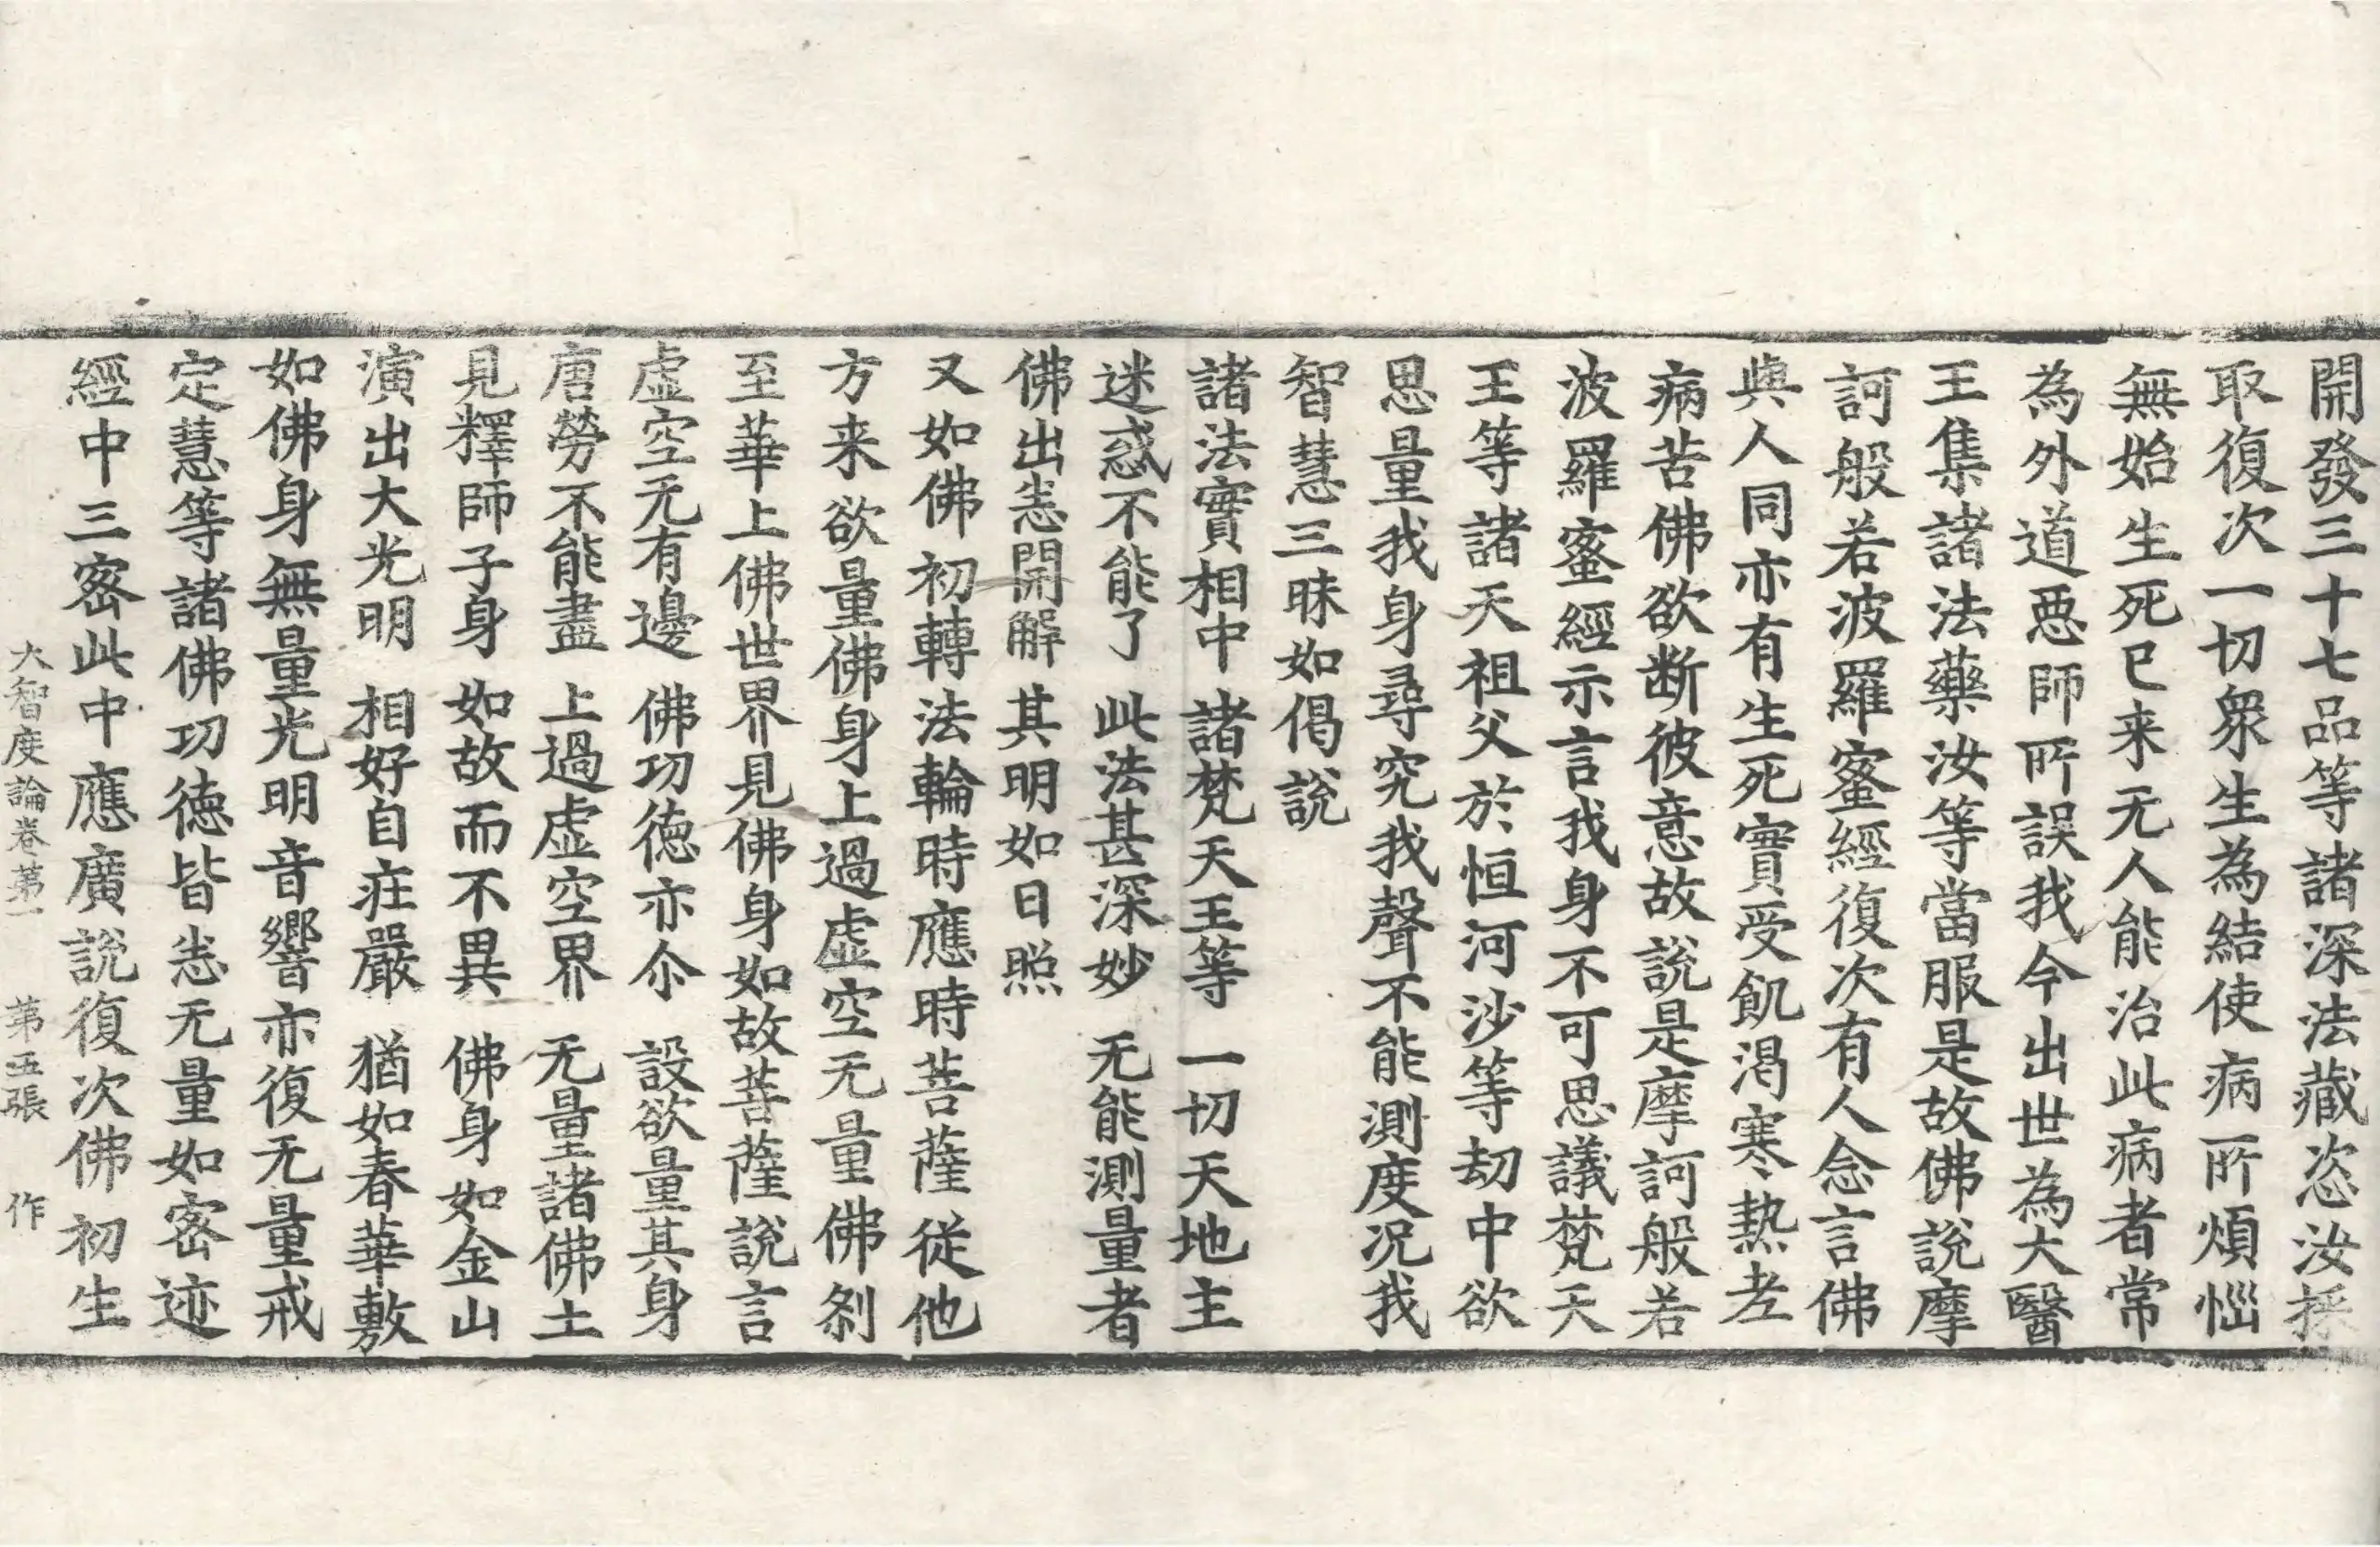 開發三十七品等諸深法藏恣汝採
取復次一切衆生為結使病所煩惱
無始生死已来无人能治此病者常
為外道惡師所誤我今出世為大醫
王集諸法藥汝等當服是故佛說摩
訶般若波羅蜜經復次有人念言佛
與人同亦有生死實受飢渴寒熱老
病苦佛欲断彼意故說是摩訶般若
波羅蜜經示言我身不可思議梵天
王等諸天祖父於恒河沙等劫中欲
思量我身尋究我聲不能測度况我
智慧三昧如偈說
諸法實相中　諸梵天王等　一切天地主
迷惑不能了　此法甚深妙　无能測量者
佛出悉開解　其明如日照
又如佛初轉法輪時應時菩薩從他
方来欲量佛身上過虛空无量佛剎
至華上佛世界見佛身如故菩薩說言
虛空无有邊　佛功德亦尒　設欲量其身
唐勞不能盡　上過虛空界　无量諸佛土
見釋師子身　如故而不異　佛身如金山
演出大光明　相好自庄嚴　猶如春華敷
如佛身無量光明音響亦復无量戒
定慧等諸佛功德皆悉无量如密迹
經中三密此中應廣說復次佛初生
大智度論卷第一　第五張　作